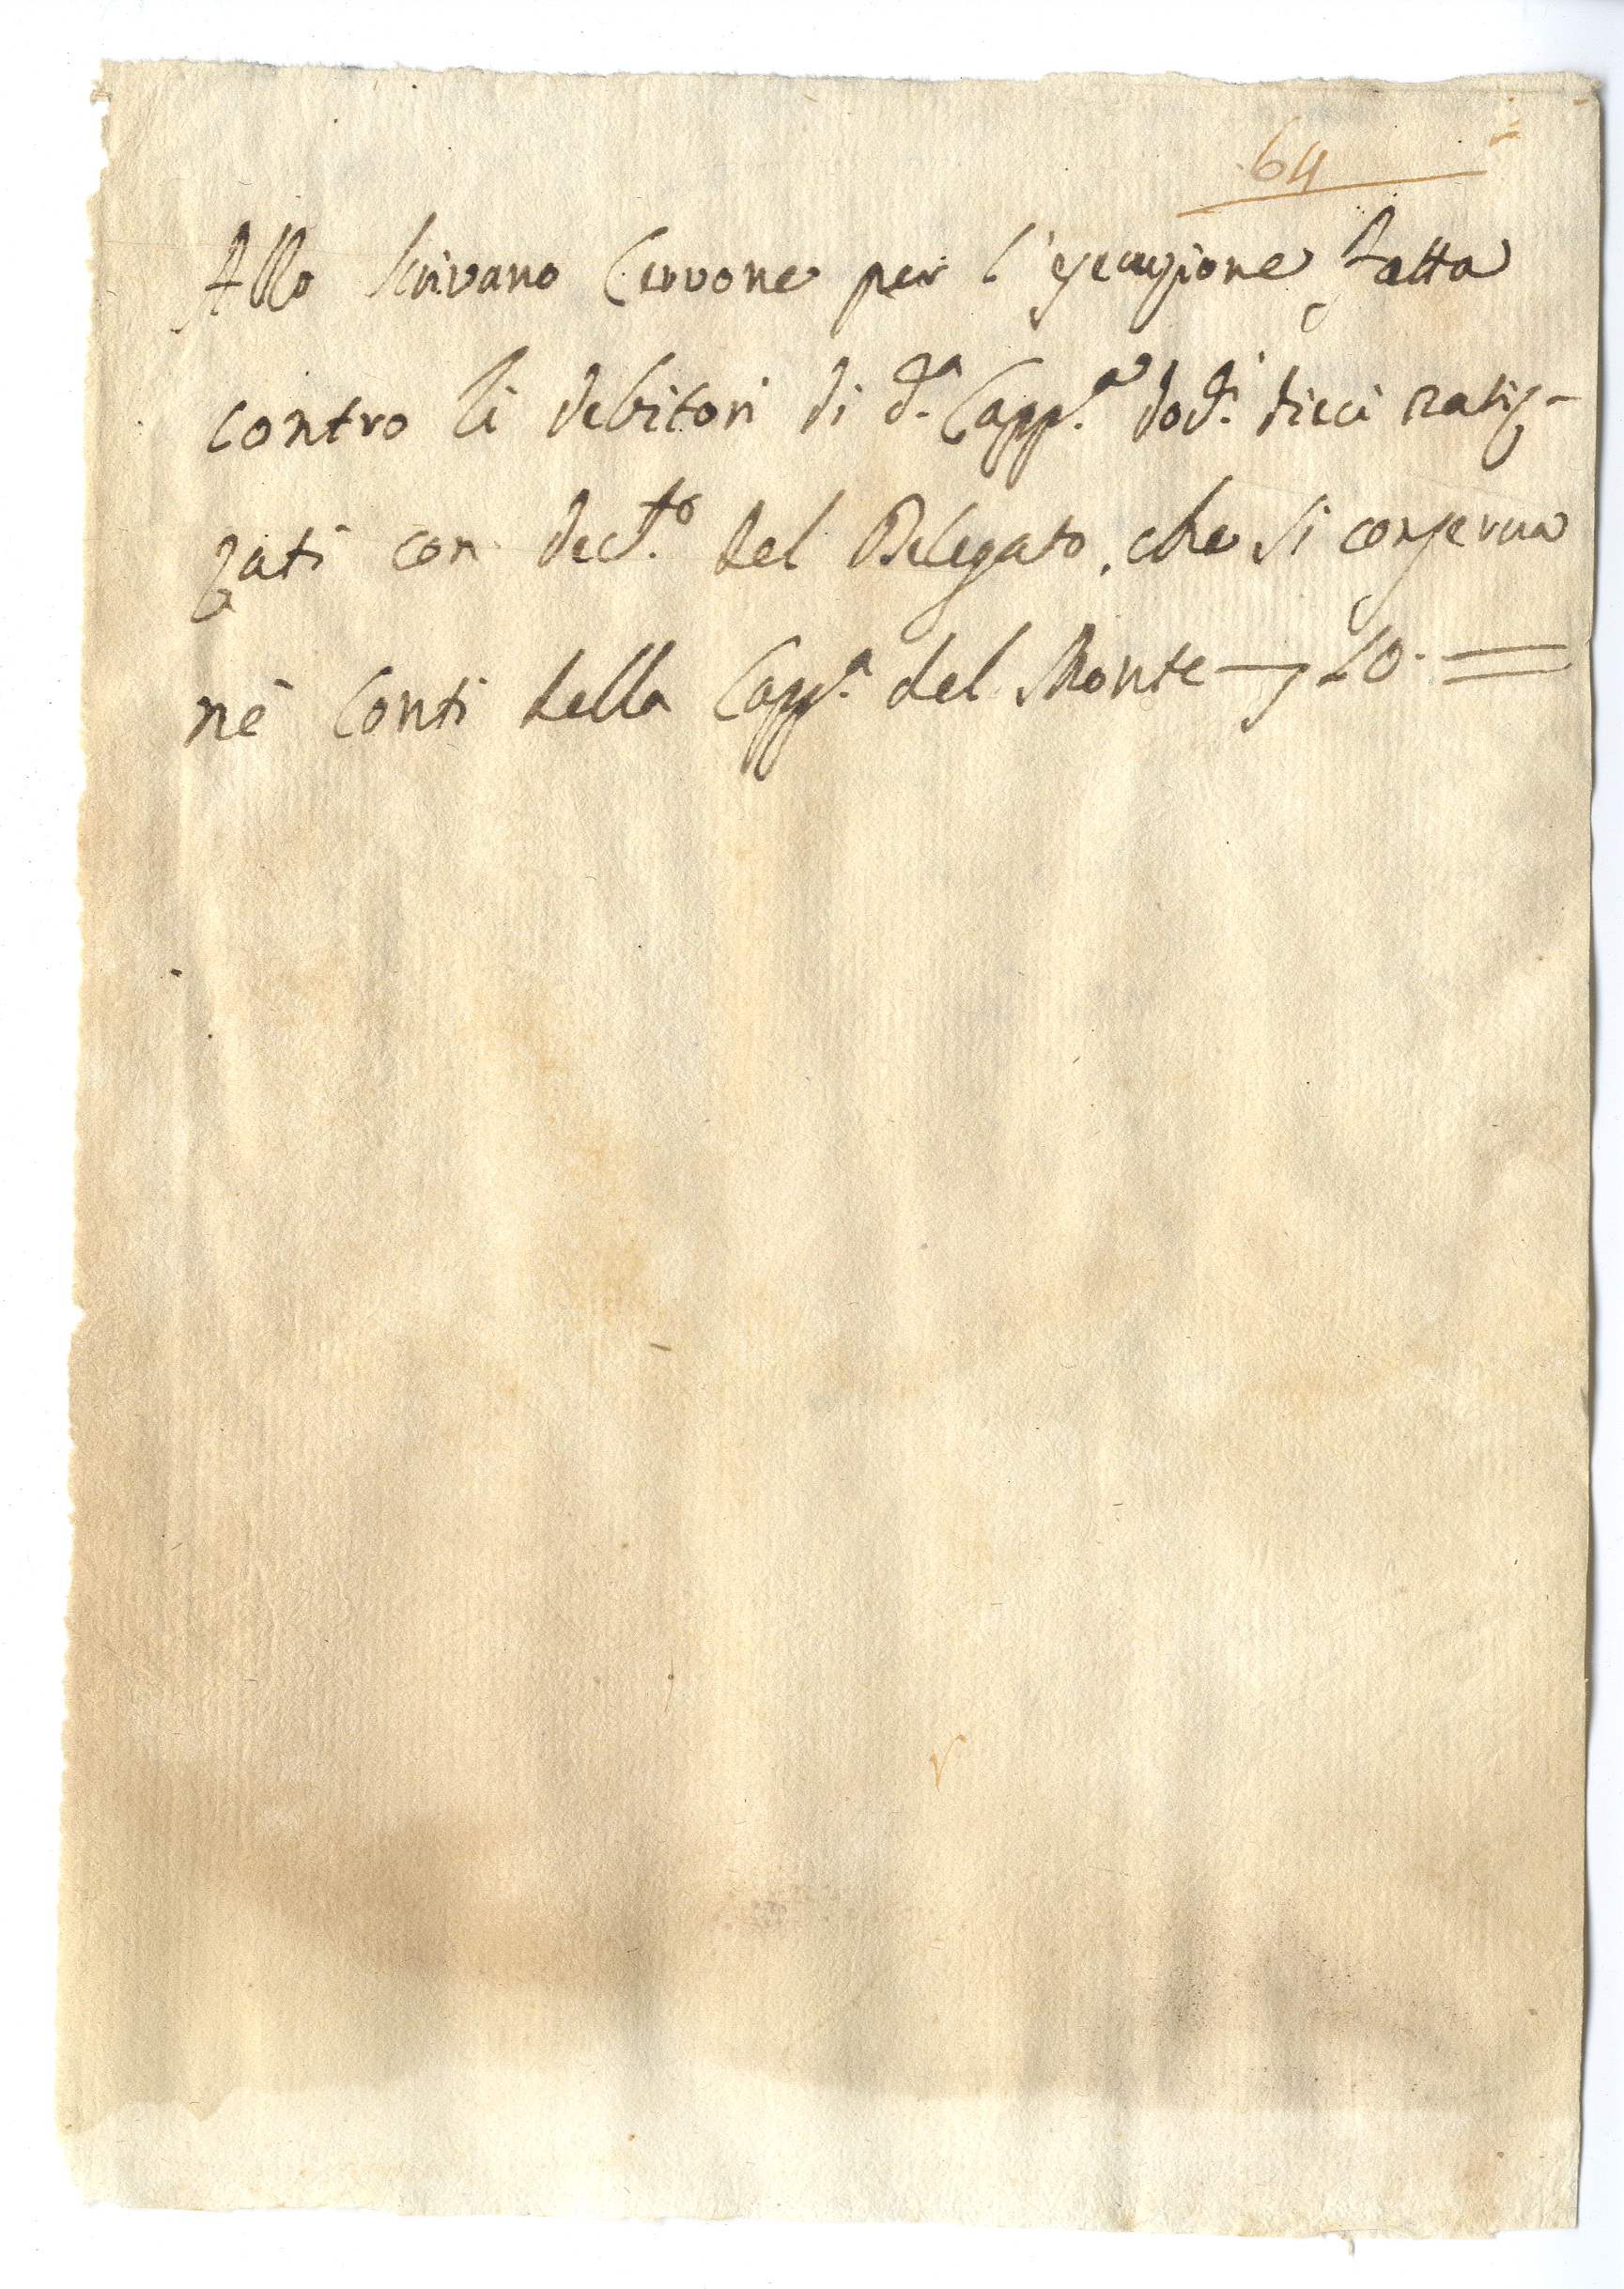 64
Allo Scrivano Cervone per l'esecuzione fatta
contro li debitori di d.ª Capp.ª doc.ⁱ dieci ratiz-
zati con dec.to del Delegato, che si conserva
nè Conti della Capp.ª del Monte 10.=